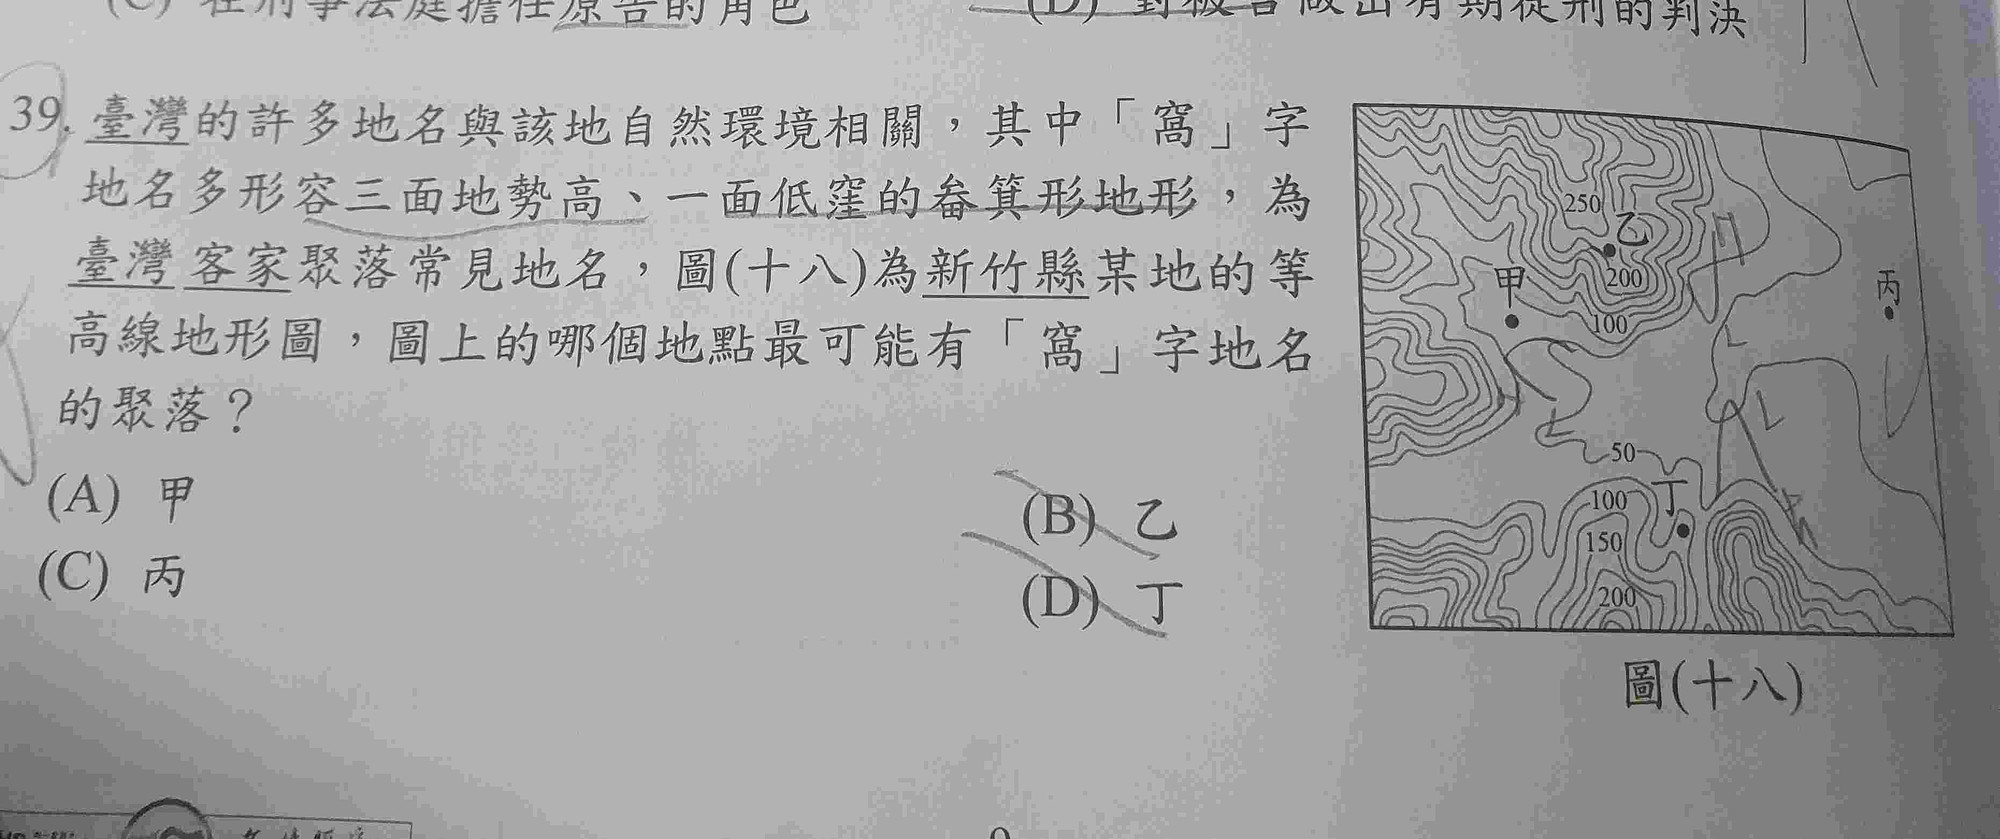 (C) 在刑事法庭擔任原告的角色
(D) 對被告做出有期徒刑的判決
39. 臺灣的許多地名與該地自然環境相關，其中「窩」字
地名多形容三面地勢高、一面低窪的畚箕形地形，為
臺灣客家聚落常見地名，圖(十八)為新竹縣某地的等
高線地形圖，圖上的哪個地點最可能有「窩」字地名
的聚落？
(A) 甲
(B) 乙
(C) 丙
(D) 丁
250
乙
200
甲
100
丙
50
丁
100
150
200
圖(十八)